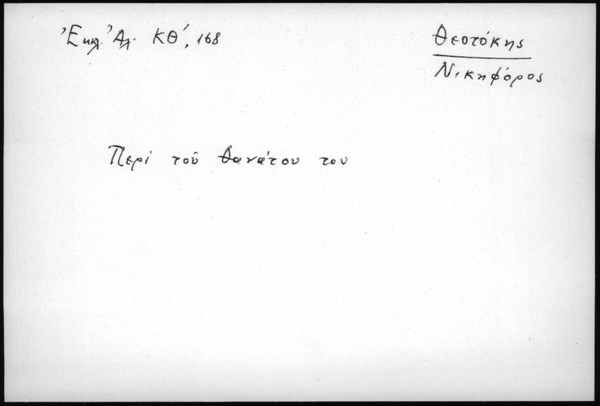 Ἐκκλ. Ἀλ. ΚΘ΄, 168
Θεοτόκης
Νικηφόρος
Περὶ τοῦ θανάτου του